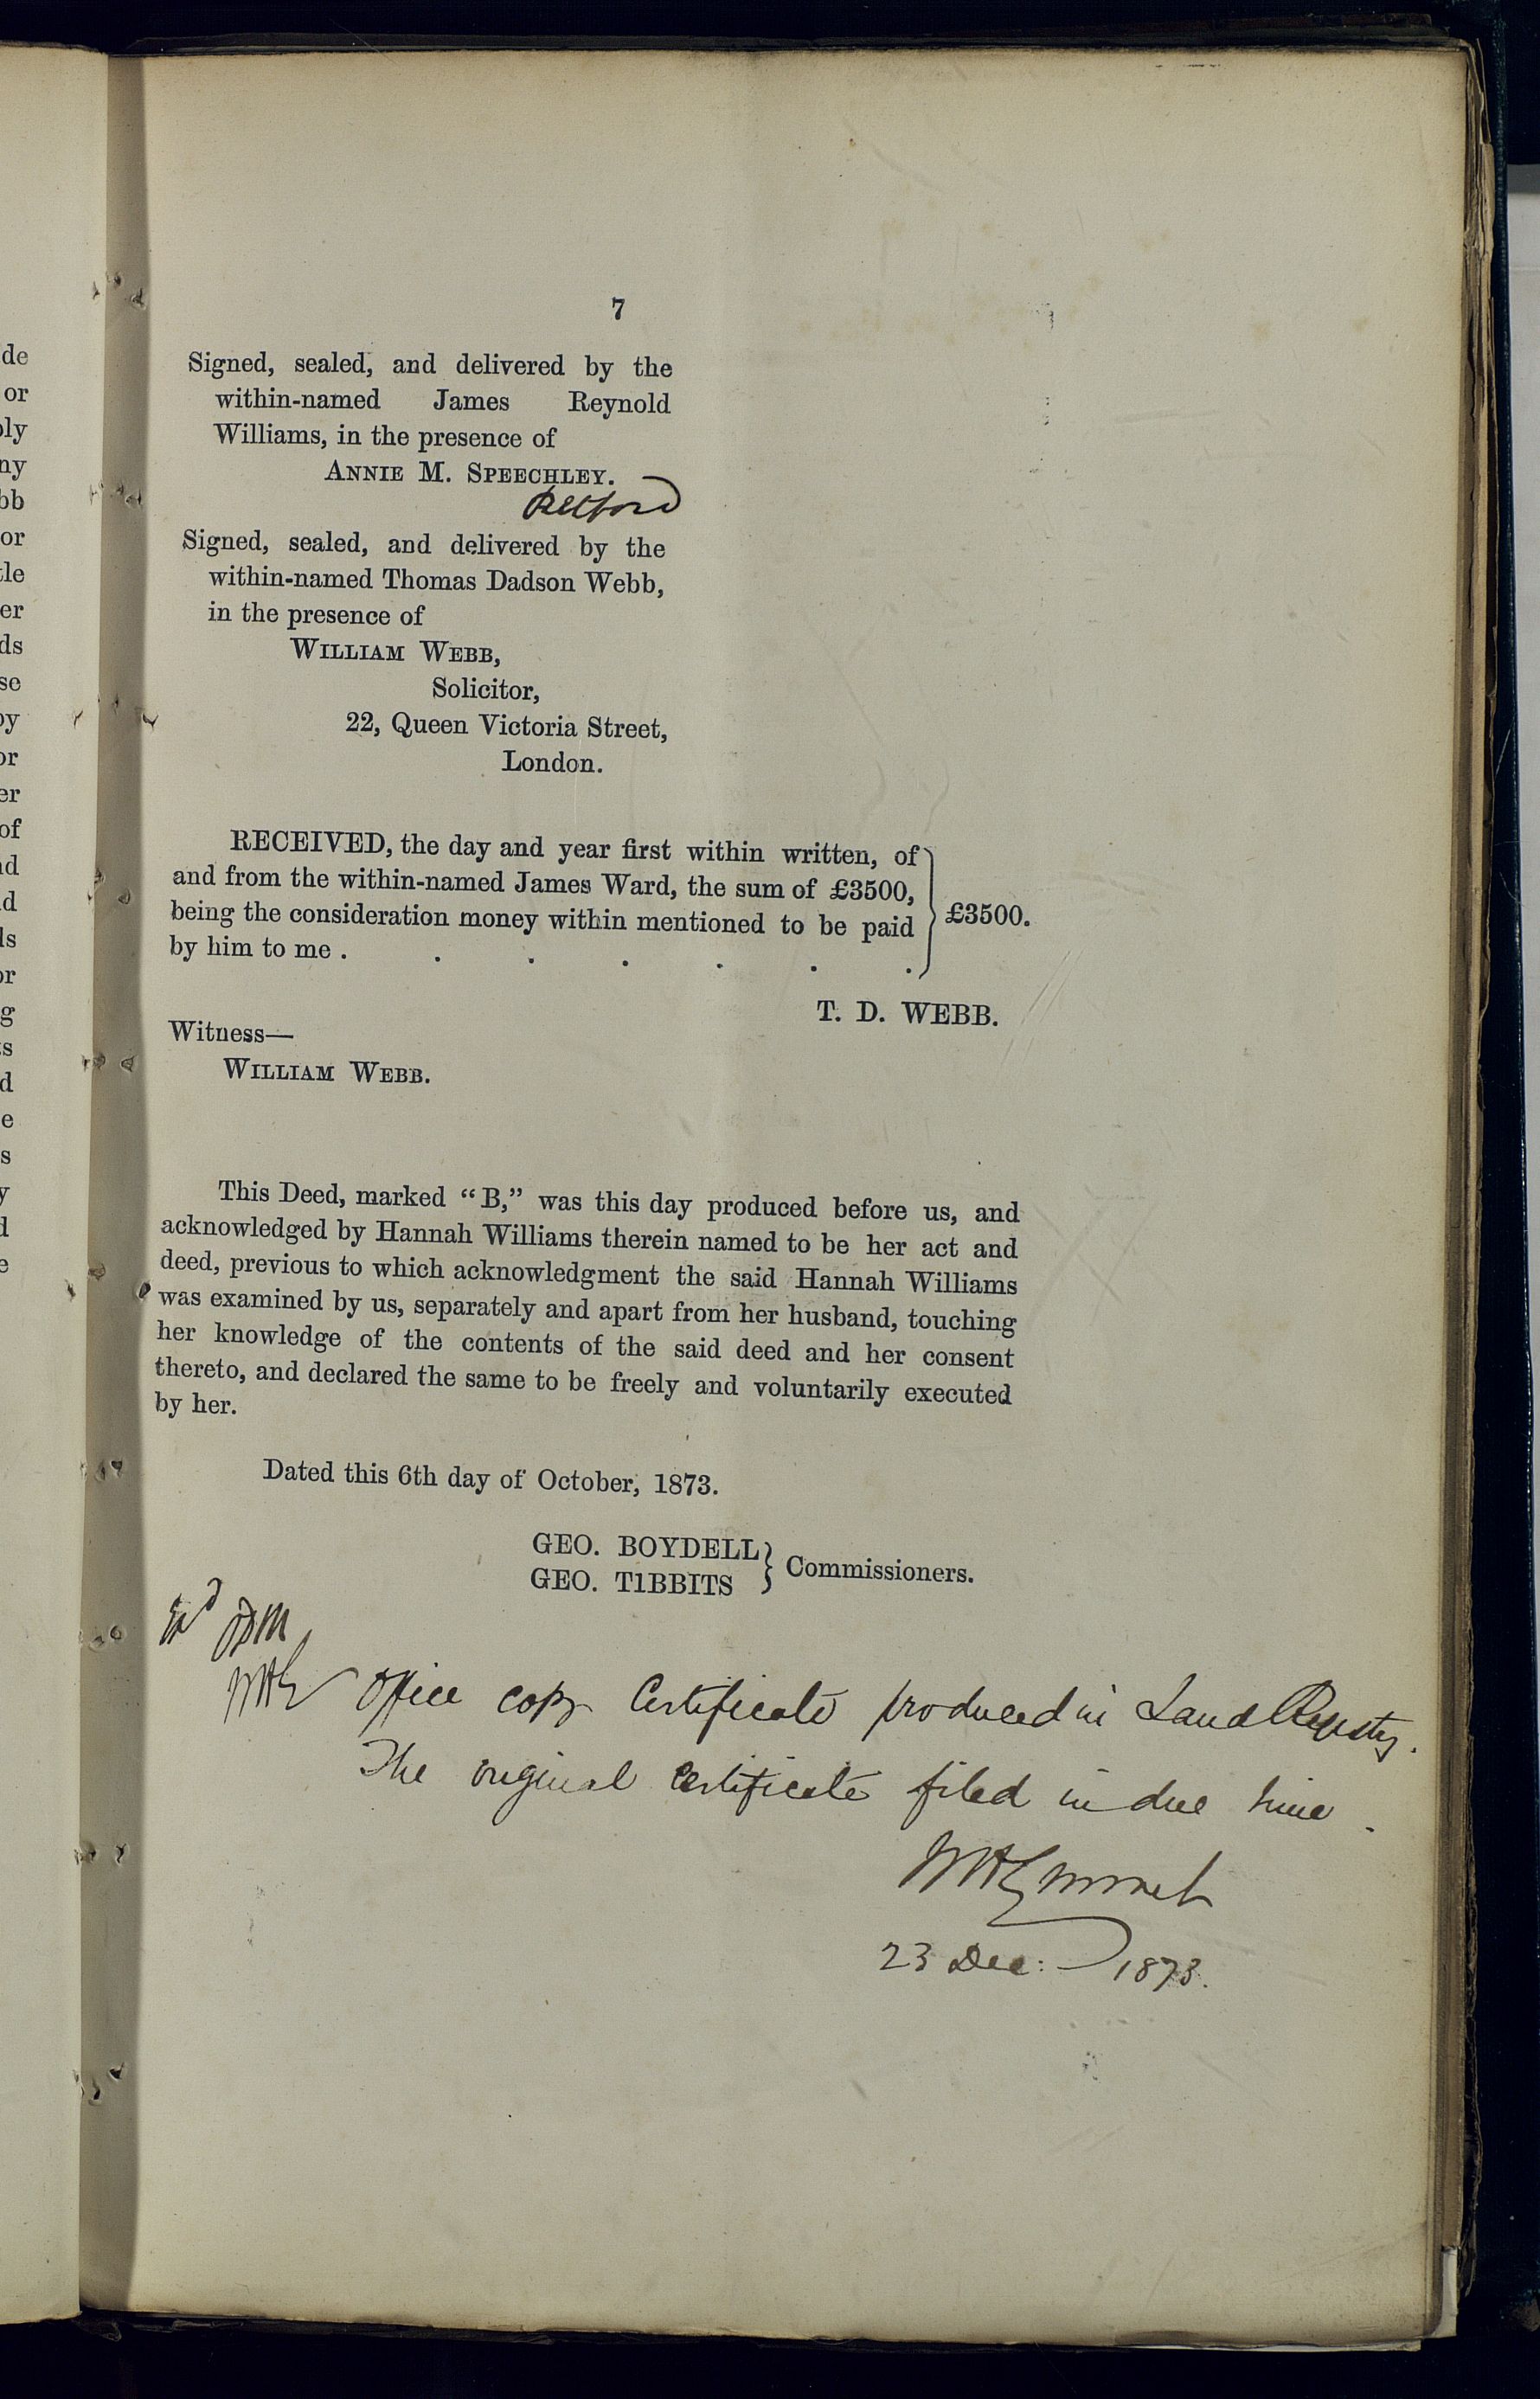 7
Signed, sealed, and delivered by the
within-named James Reynold
Williams, in the presence of
ANNIE M. SPEECHLEY.
Retford
Signed, sealed, and delivered by the
within-named Thomas Dadson Webb,
in the presence of
WILLIAM WEBB,
Solicitor,
22, Queen Victoria Street,
London.
RECEIVED, the day and year first within written, of
and from the within-named James Ward, the sum of £3500,
being the consideration money within mentioned to be paid
by him to me . . . . . . .
£3500.
T. D. WEBB.
Witness—
WILLIAM WEBB.
This Deed, marked “B,” was this day produced before us, and
acknowledged by Hannah Williams therein named to be her act and
deed, previous to which acknowledgment the said Hannah Williams
was examined by us, separately and apart from her husband, touching
her knowledge of the contents of the said deed and her consent
thereto, and declared the same to be freely and voluntarily executed
by her.
Dated this 6th day of October, 1873.
GEO. BOYDELL
GEO. TIBBITS
Commissioners.
Office copy Certificate produced in Land Registry.
The original Certificate filed in due time.
23 Dec: 1873.